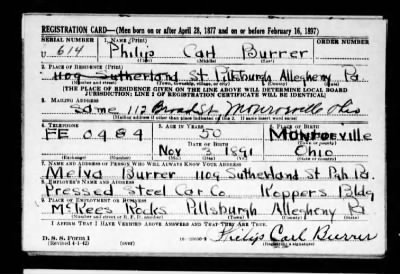 REGISTRATION CARD—(Men born on or after April 28, 1877 and on or before February 16, 1897)
SERIAL NUMBER 1. NAME (Print) ORDER NUMBER
U 614 Philip Carl Burrer
(First) (Middle) (Last)
2. PLACE OF RESIDENCE (Print)
1109 Sutherland St Pittsburgh Allegheny Pa.
(Number and street) (Town, township, village, or city) (County) (State)
[THE PLACE OF RESIDENCE GIVEN ON THE LINE ABOVE WILL DETERMINE LOCAL BOARD
JURISDICTION; LINE 2 OF REGISTRATION CERTIFICATE WILL BE IDENTICAL]
3. MAILING ADDRESS
Same 112 Broad St. Monroeville Ohio
[Mailing address if other than place indicated on line 2. If same insert word same]
4. TELEPHONE 5. AGE IN YEARS 6. PLACE OF BIRTH
FE 0464 50 Monroeville
DATE OF BIRTH (Town or county)
Nov 3 1891 Ohio
(Exchange) (Number) (Mo.) (Day) (Yr.) (State or country)
7. NAME AND ADDRESS OF PERSON WHO WILL ALWAYS KNOW YOUR ADDRESS
Melva Burrer 1109 Sutherland St Pgh Pa.
8. EMPLOYER'S NAME AND ADDRESS
Pressed Steel Car Co. Koppers Bldg
9. PLACE OF EMPLOYMENT OR BUSINESS
McKees Rocks Pittsburgh Allegheny Pa
(Number and street or R. F. D. number) (Town) (County) (State)
I AFFIRM THAT I HAVE VERIFIED ABOVE ANSWERS AND THAT THEY ARE TRUE.
D. S. S. Form 1
(Revised 4-1-42) (over) Philip Carl Burrer
(Registrant's signature)